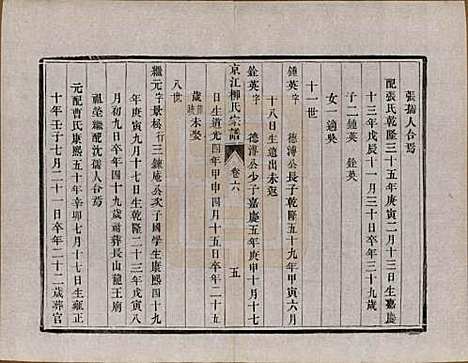 張孺人合焉
配張氏乾隆三十五年庚寅二月十三日生嘉慶
十三年戊辰十一月三十日卒年三十九歳
子二鍾英 銓英
女 適吳
十一世
鍾英字 德溥公長子乾隆五十九年甲寅六月
十八日生遠出未返
銓英字 德溥公少子嘉慶五年庚申十月十七
京江柳氏宗譜
卷六
五
日生道光四年甲申四月十五日卒年二十五
歲 未娶
八世
繼元字景梅行三鍊庵公次子國學生康熙四十九
年庚寅九月十八日生乾隆二十三年戊寅八
月初九日卒年四十九歲祔葬長山龍王廟
祖塋繼配沈孺人合焉
元配曹氏康熙五十年辛卯七月十七日生雍正
十年壬子七月二十一日卒年二十二歲葬官